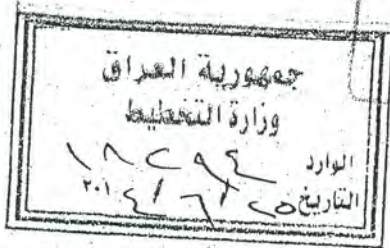 جمهورية العراق
وزارة التخطيط
الوارد ١٨٢٩٤
التاريخ ٢٥/٦/٢٠١٤